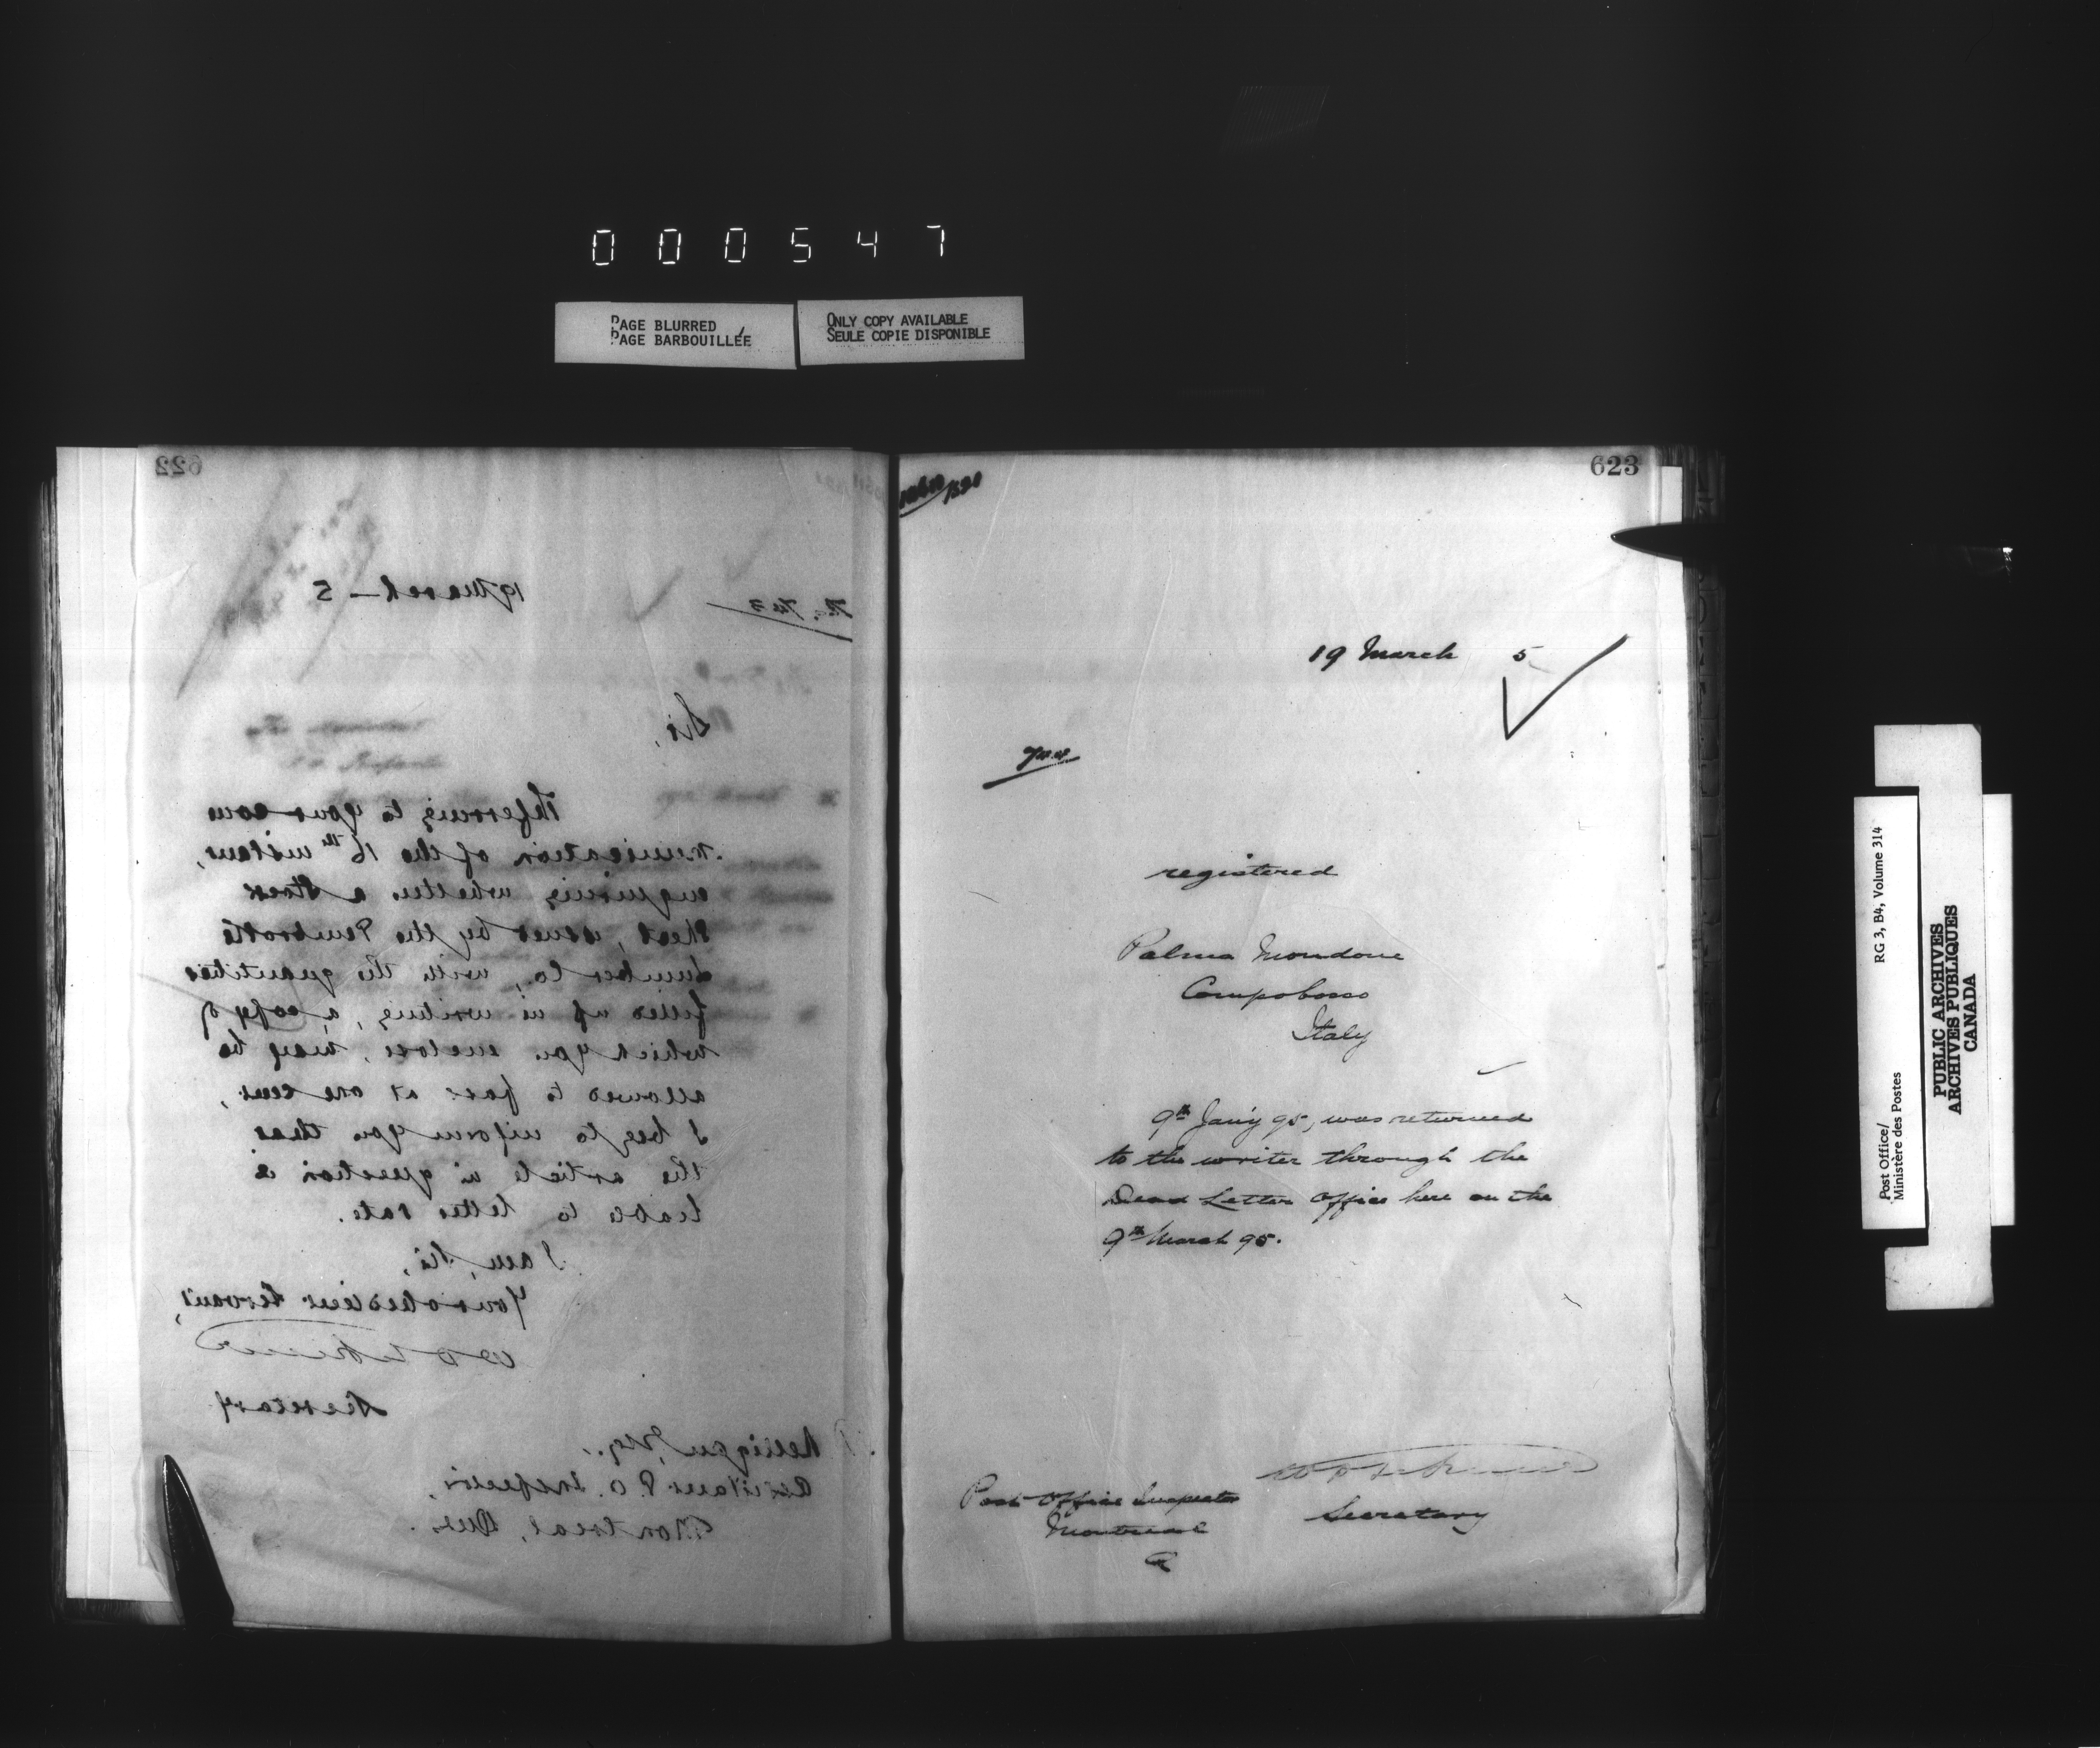 000547
PAGE BLURRED
PAGE BARBOUILLÉE
ONLY COPY AVAILABLE
SEULE COPIE DISPONIBLE
622
19 March – 5
Sir,
Referring to your com
munication of the 16th instant,
enquiring whether a stock
sheet, issued by the Pembroke
Lumber Co, with the quantities
filled up in writing, a copy of
which you enclose, may be
allowed to pass at one cent,
I beg to inform you that
the article in question is
liable to letter rate.
I am, Sir,
Your obedient Servant,
Secretary
Esq.,
Assistant P. O. Inspector,
Montreal, Que.
623
19 March 5
registered
Palma Mondone
Campobasso
Italy
9th Jan'y 95, was returned
to the writer through the
Dead Letter Office here on the
9th March 95.
Secretary
Post Office Inspector
Montreal
RG 3, B4, Volume 314
Post Office/
Ministère des Postes
PUBLIC ARCHIVES
ARCHIVES PUBLIQUES
CANADA